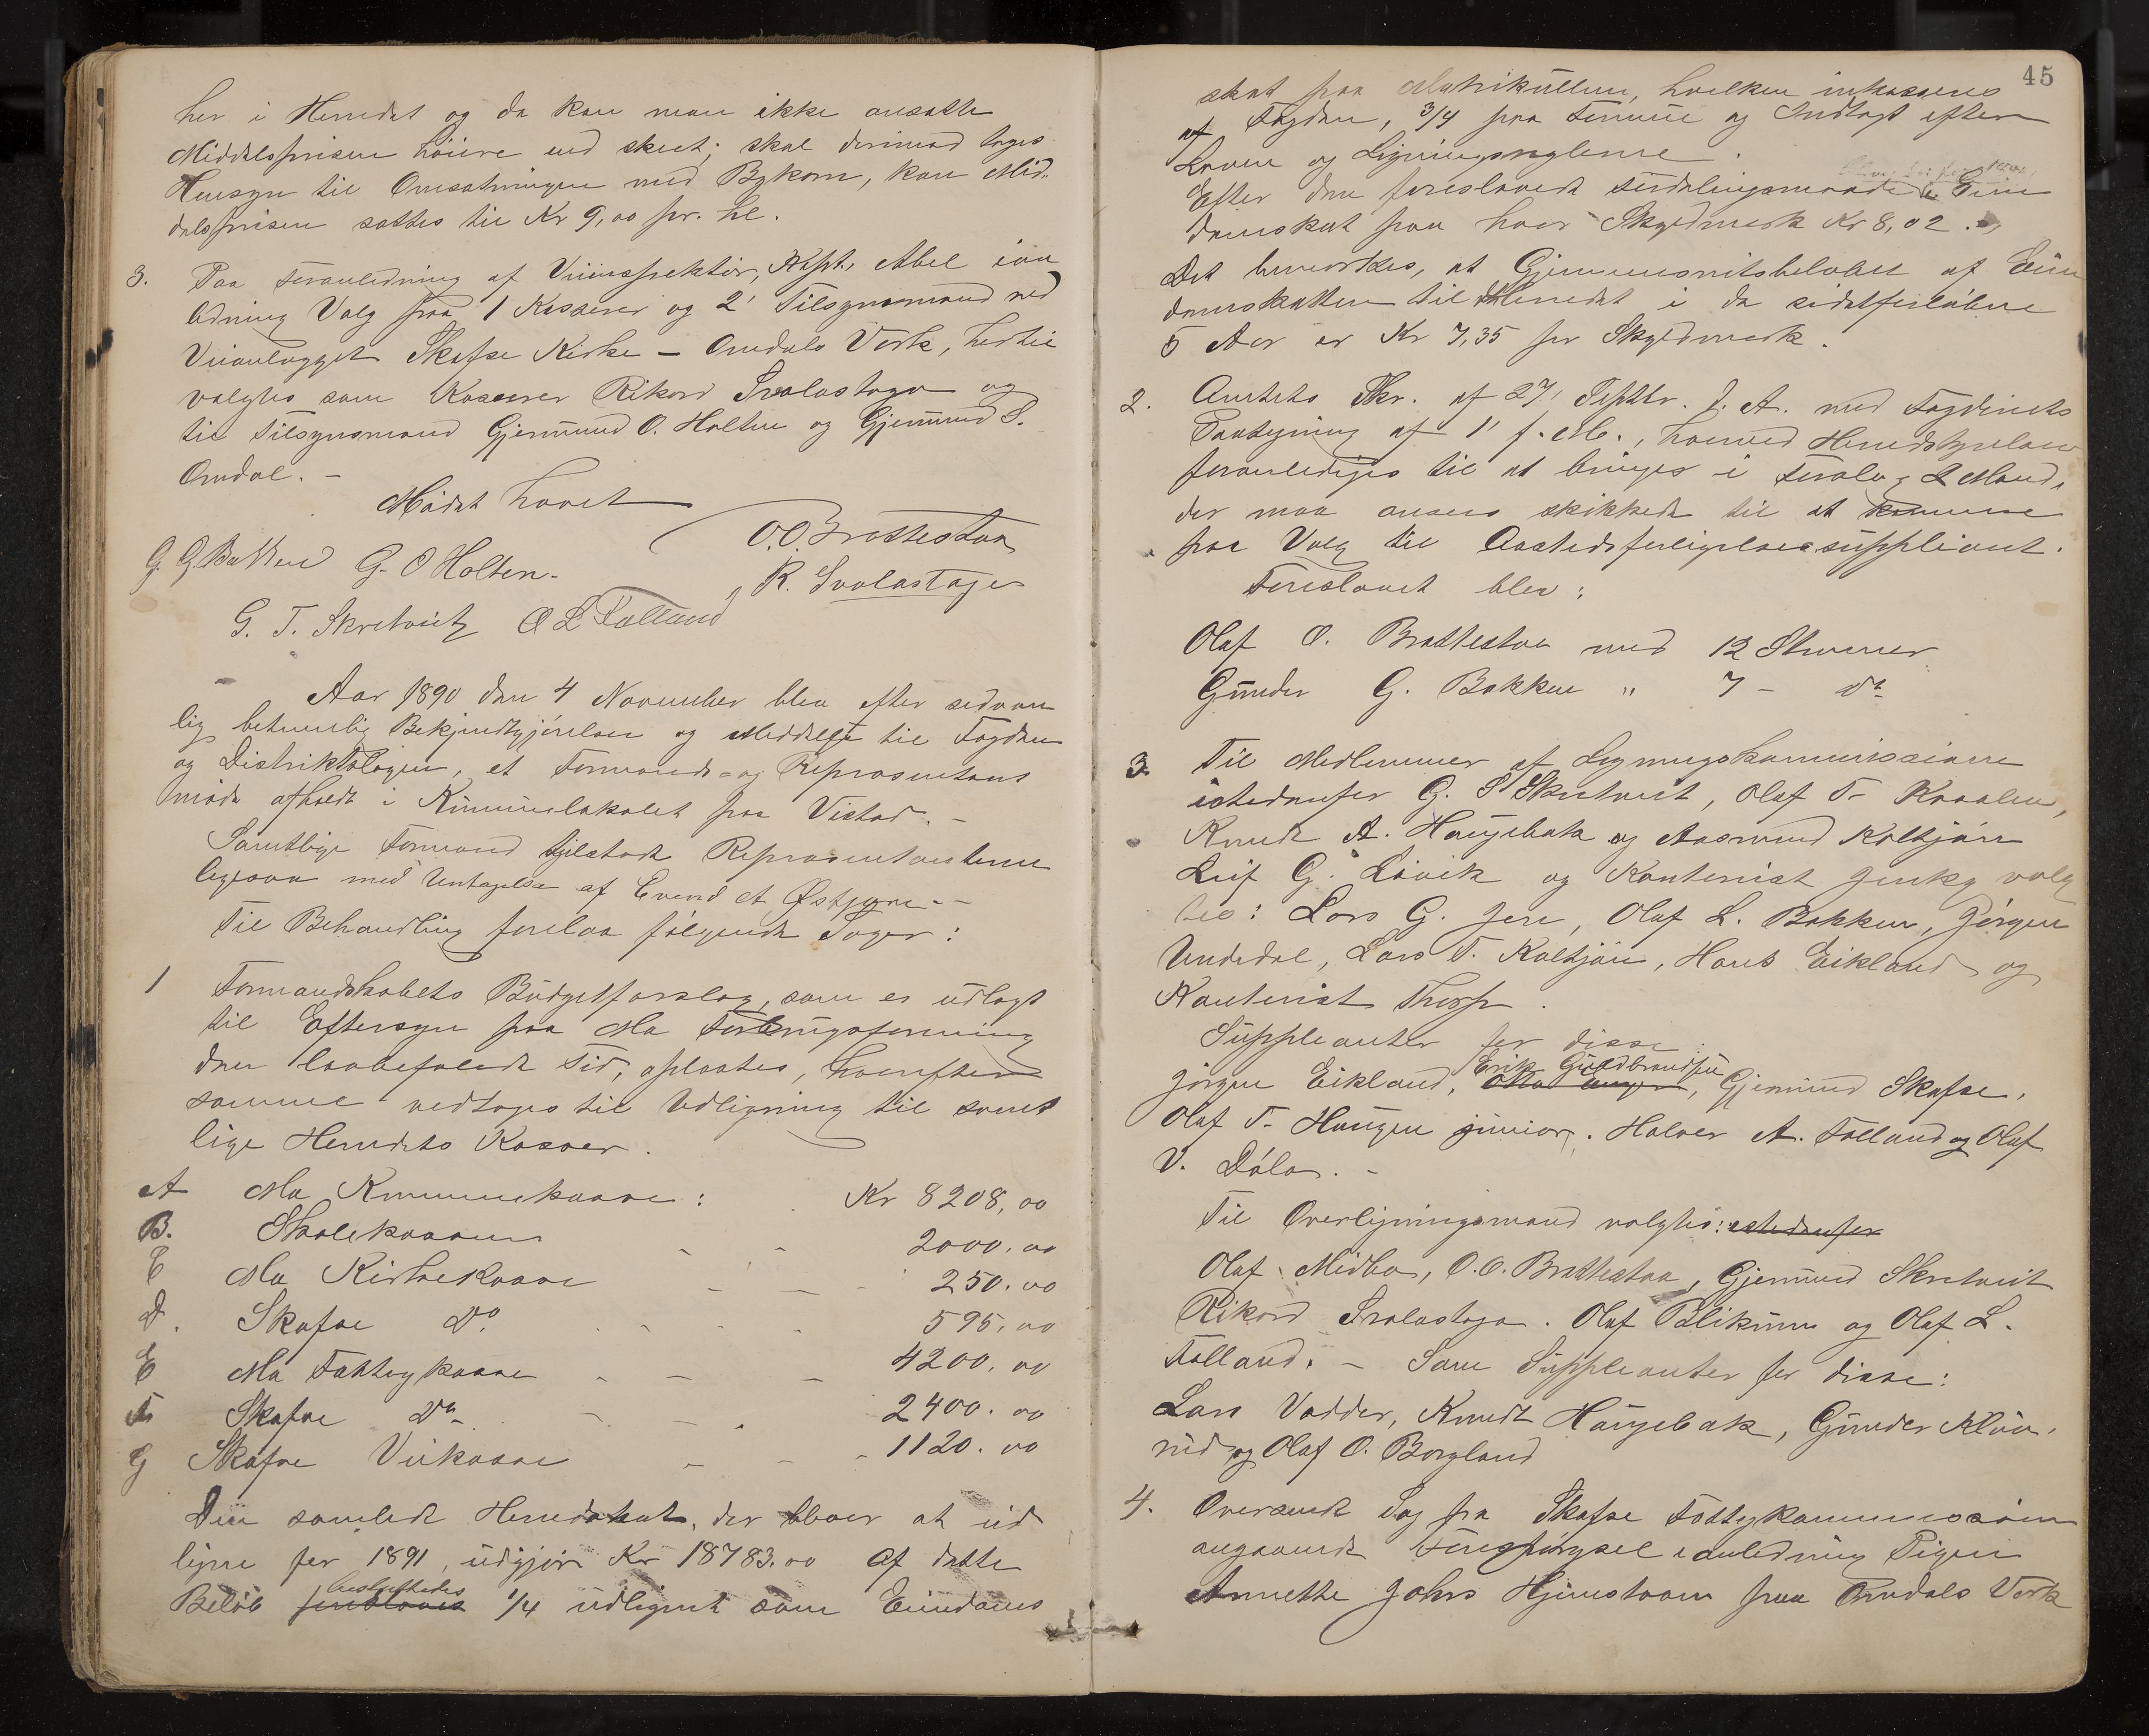 her i Herredet og da kan man ikke ansætte
Middelprisen høiere end skeet; skal derimod tages
Hensyn til Omsætningen med Bykorn, kan Mid-
delsprisen sættes til Kr 9,00 pr. hl.
3. Paa Foranledning af Veiinspektør, Kapt. Abel i an
ledning Valg paa 1 Kasserer og 2' Tilsynsmænd ved
Veianlægget Skafse Kirke – Omdals Værk, hertil
valgtes som Kasserer Rikard Svalastoga og
til Tilsynsmænd Gjermund O. Holten og Gjermund S.
Omdal. –
Mødet hævet
O. O. Brattestaa
G. G. Bakken G. O Holten.
R. Svalastoga
G. T. Skretveit O L Følland
Aar 1890 den 4 November blev efter sedvan
lig betimelig Bekjendtgjørelse og Meddelse til Fogden
og Distriktslægen, et Formands- og Repræsentant
møde afholdt i Kommunelokalet paa Vistad. –
Samtlige Formænd tilstede Repræsentanterne
ligesaa med Untagelse af Evend A Østjore. –
Til Behandling forelaa følgende Sager:
1 Formandskabets Budgetforslag, som er udlagt
til Eftersyn paa Mo Forbrugsforening
den lovbefalede Tid, oplæstes, hvorefter
samme vedtoges til Udligning til samt
lige Herredets Kasser.
A Mo Kommunekasse: Kr 8208,00
B. Skolekassen - - 2000.00
C Mo Kirkekasse - - - 250.00
D. Skafse Do. - - - 595,00
E Mo Fattigkasse - - - 4200.00
F Skafse Do - - - 2400.00
G Skafse Veikasse - - - 1120.00
Den samlede Herredskat, der bliver at ud
ligne for 1891, udgjør Kr 18783.00 Af dette
besluttedes
Beløb foreslaaes 1/4 udlignet som Eiendoms
45
skat paa Matrikullen, hvilken inkasseres
af Fogden, 3/4 paa Formue og Indtægt efter
Loven og Ligningsreglerne.
Efter den foreslaaede Fordelingsmaade Eien
domskat paa hver Skyldmark Kr 8,02.
Det bemærkes, at Gjennemsnitsbeløbet af Eien
domskatten til Herredet i de sidstforløbne
5 Aar er Kr 7,35 pr Skyldmark.
2. Amtets Skr. af 27' Septbr. d. A. med Fogderiets
Paategning af 1' f. M., hvorved Herredstyrelsen
foranlediges til at bringe i Forslag 2 Mænd,
der maa ansees skikkede til at komme
paa Valg til Aastedsforligelsessuppleant.
Foreslaaet blev:
Olaf O. Brattestaa med 12 Stemmer
Gunder G. Bakken " 7 – Do
3. Til Medlemmer af Ligningskommissionen
istedenfor G. S Skretveit, Olaf T. Kaalen,
Knud A. Haugebak og Aasmund Koltjøn
Leif G. Løvik og Kontorist Jenky valg
tes: Lars G. Jore, Olaf L. Bakken, Jørgen
Undedal, Lars T. Koltjøn, Hans Eikland og
Kontorist Thorp.
Suppleanter for disse:
Erik Guldbrandsen
Jørgen Eikland, , Gjermund Skafse,
Olaf T. Haugen junior, Halvor A. Følland og Olaf
V. Dåla. –
Til Overligningsmænd valgtes: istedenfor
Olaf Midbø, O. O. Brattestaa, Gjermund Skretveit
Rikard Svalastoga. Olaf Blikum og Olaf L.
Følland. – Som Suppleanter for disse:
Lars Vadder, Knud Haugebak, Gunder
rud og Olaf O. Borgland
4. Oversendt Sag fra Skafse Fattigkommission
angaaende Forespørgsel i anledning Pigen
Annette Johns Hjemstavn paa Omdals Værk